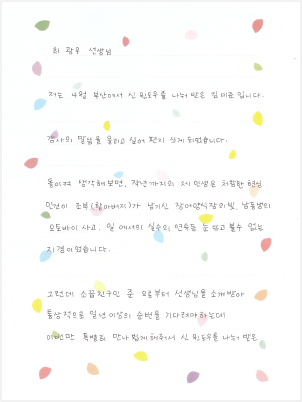 최 광우 선생님
저는 4월 부산에서 신 윈도우를 나눠 받은 김미준 입니다.
감사의 말씀을 올리고 싶어 편지 쓰게 되었습니다.
돌이켜 생각해보면, 작년까지의 저의 인생은 처참한 현실
이 조부(할아버지)가 남기신 장어양식장의 빚, 남동생의
오토바이 사고, 일 에서의 실수의 연속등 눈 뜨고 볼수 없는
지경이었습니다.
그런데 소꿉친구인 준 으로부터 선생님을 소개받아
통상적으로 일년 이상의 순번을 기다려야하는데
이번만 특별히 만나 뵙게 해주셔서 신 윈도우를 나눠 받은